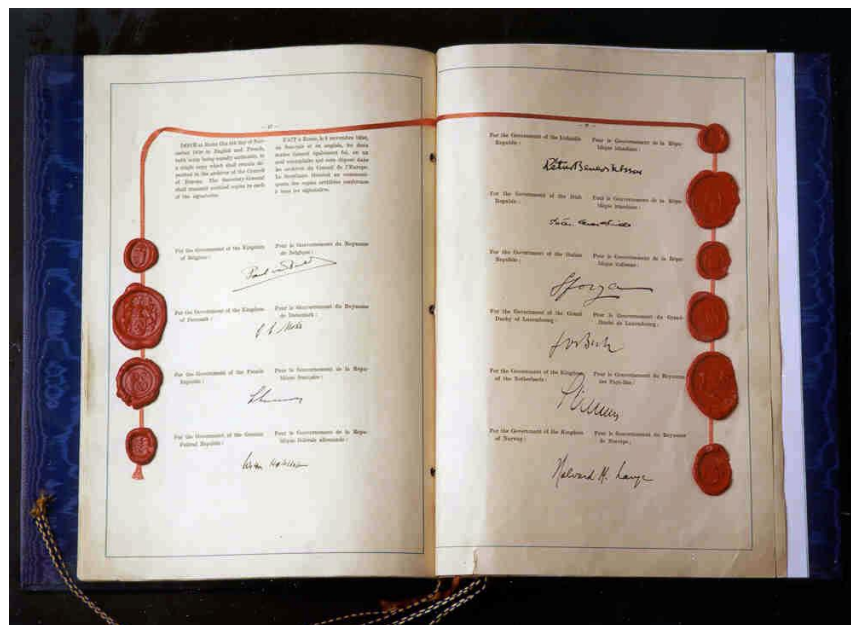 DONE at Rome this 4th day of Nov-
ember 1950 in English and French,
both texts being equally authentic, in
a single copy which shall remain de-
posited in the archives of the Council
of Europe. The Secretary-General
shall transmit certified copies to each
of the signatories.
FAIT à Rome, le 4 novembre 1950,
en français et en anglais, les deux
textes faisant également foi, en un
seul exemplaire qui sera déposé dans
les archives du Conseil de l'Europe.
Le Secrétaire Général en communi-
quera des copies certifiées conformes
à tous les signataires.
For the Government of the Kingdom
of Belgium :
Pour le Gouvernement du Royaume
de Belgique :
For the Government of the Kingdom
of Denmark :
Pour le Gouvernement du Royaume
de Danemark :
For the Government of the French
Republic :
Pour le Gouvernement de la Répu-
blique française :
For the Government of the German
Federal Republic :
Pour le Gouvernement de la Répu-
blique fédérale allemande :
For the Government of the Icelandic
Republic :
Pour le Gouvernement de la Répu-
blique islandaise :
For the Government of the Irish
Republic :
Pour le Gouvernement de la Répu-
blique irlandaise :
For the Government of the Italian
Republic :
Pour le Gouvernement de la Répu-
blique italienne :
Sforza
For the Government of the Grand
Duchy of Luxembourg :
Pour le Gouvernement du Grand-
Duché de Luxembourg :
Jos Bech
For the Government of the Kingdom
of the Netherlands :
Pour le Gouvernement du Royaume
des Pays-Bas :
For the Government of the Kingdom
of Norway :
Pour le Gouvernement du Royaume
de Norvège :
Halvard M. Lange